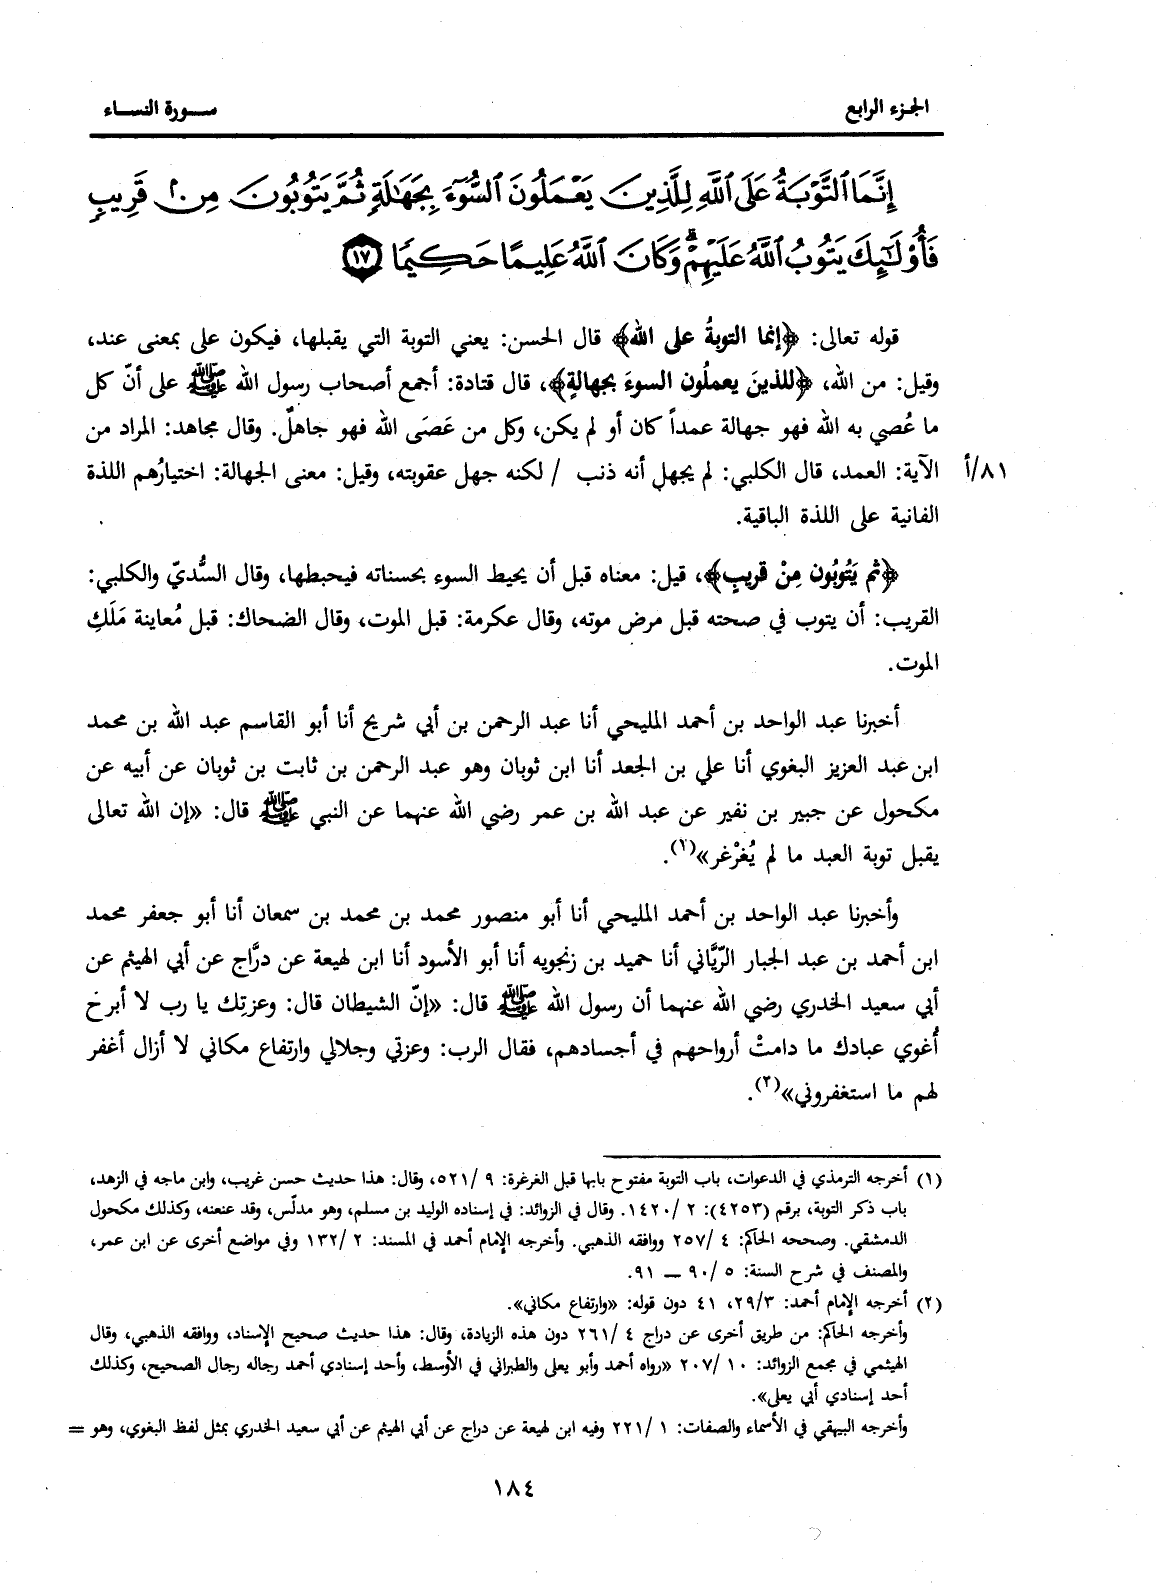 الجزء الرابع
ســورة النســاء
إِنَّمَا ٱلتَّوْبَةُ عَلَى ٱللَّهِ لِلَّذِينَ يَعْمَلُونَ ٱلسُّوٓءَ بِجَهَـٰلَةٍ ثُمَّ يَتُوبُونَ مِن قَرِيبٍ
فَأُو۟لَـٰٓئِكَ يَتُوبُ ٱللَّهُ عَلَيْهِمْ ۗ وَكَانَ ٱللَّهُ عَلِيمًا حَكِيمًا ١٧
قوله تعالى: ﴿إنما التوبةُ على الله﴾ قال الحسن: يعني التوبة التي يقبلها، فيكون على بمعنى عند،
وقيل: من الله، ﴿للذينَ يعملُون السوءَ بجهالةٍ﴾، قال قتادة: أجمع أصحاب رسول الله ﷺ على أنّ كل
ما عُصي به الله فهو جهالة عمداً كان أو لم يكن، وكل من عَصَى الله فهو جاهلٌ. وقال مجاهد: المراد من
٨١/أ الآية: العمد، قال الكلبي: لم يجهل أنه ذنب / لكنه جهل عقوبته، وقيل: معنى الجهالة: اختيارُهم اللذة
الفانية على اللذة الباقية.
﴿ثم يَتُوبُون مِنْ قريبٍ﴾، قيل: معناه قبل أن يحيط السوء بحسناته فيحبطها، وقال السُّديّ والكلبي:
القريب: أن يتوب في صحته قبل مرض موته، وقال عكرمة: قبل الموت، وقال الضحاك: قبل مُعاينة مَلَكِ
الموت.
أخبرنا عبد الواحد بن أحمد المليحي أنا عبد الرحمن بن أبي شريح أنا أبو القاسم عبد الله بن محمد
ابن عبد العزيز البغوي أنا علي بن الجعد أنا ابن ثوبان وهو عبد الرحمن بن ثابت بن ثوبان عن أبيه عن
مكحول عن جبير بن نفير عن عبد الله بن عمر رضي الله عنهما عن النبي ﷺ قال: «إن الله تعالى
يقبل توبة العبد ما لم يُغرْغر»(١).
وأخبرنا عبد الواحد بن أحمد المليحي أنا أبو منصور محمد بن محمد بن سمعان أنا أبو جعفر محمد
ابن أحمد بن عبد الجبار الرّيَّاني أنا حميد بن زنجويه أنا أبو الأسود أنا ابن لهيعة عن درَّاج عن أبي الهيثم عن
أبي سعيد الخدري رضي الله عنهما أن رسول الله ﷺ قال: «إنّ الشيطان قال: وعزتِك يا رب لا أبرحَ
أُغوي عبادك ما دامتْ أرواحهم في أجسادهم، فقال الرب: وعزتي وجلالي وارتفاع مكاني لا أزال أغفر
لهم ما استغفروني»(٢).
(١) أخرجه الترمذي في الدعوات، باب التوبة مفتوح بابها قبل الغرغرة: ٩ /٥٢١، وقال: هذا حديث حسن غريب، وابن ماجه في الزهد،
باب ذكر التوبة، برقم (٤٢٥٣): ٢ /١٤٢٠. وقال في الزوائد: في إسناده الوليد بن مسلم، وهو مدلّس، وقد عنعنه، وكذلك مكحول
الدمشقي. وصححه الحاكم: ٤ /٢٥٧ ووافقه الذهبي. وأخرجه الإمام أحمد في المسند: ٢ /١٣٢ وفي مواضع أخرى عن ابن عمر،
والمصنف في شرح السنة: ٥ /٩٠ ــ ٩١.
(٢) أخرجه الإمام أحمد: ٢٩/٣، ٤١ دون قوله: «وارتفاع مكاني».
وأخرجه الحاكم: من طريق أخرى عن دراج ٤ /٢٦١ دون هذه الزيادة، وقال: هذا حديث صحيح الإسناد، ووافقه الذهبي، وقال
الهيثمي في مجمع الزوائد: ١٠ /٢٠٧ «رواه أحمد وأبو يعلى والطبراني في الأوسط، وأحد إسنادي أحمد رجاله رجال الصحيح، وكذلك
أحد إسنادي أبي يعلى».
وأخرجه البيهقي في الأسماء والصفات: ١ /٢٢١ وفيه ابن لهيعة عن دراج عن أبي الهيثم عن أبي سعيد الخدري بمثل لفظ البغوي، وهو =
١٨٤